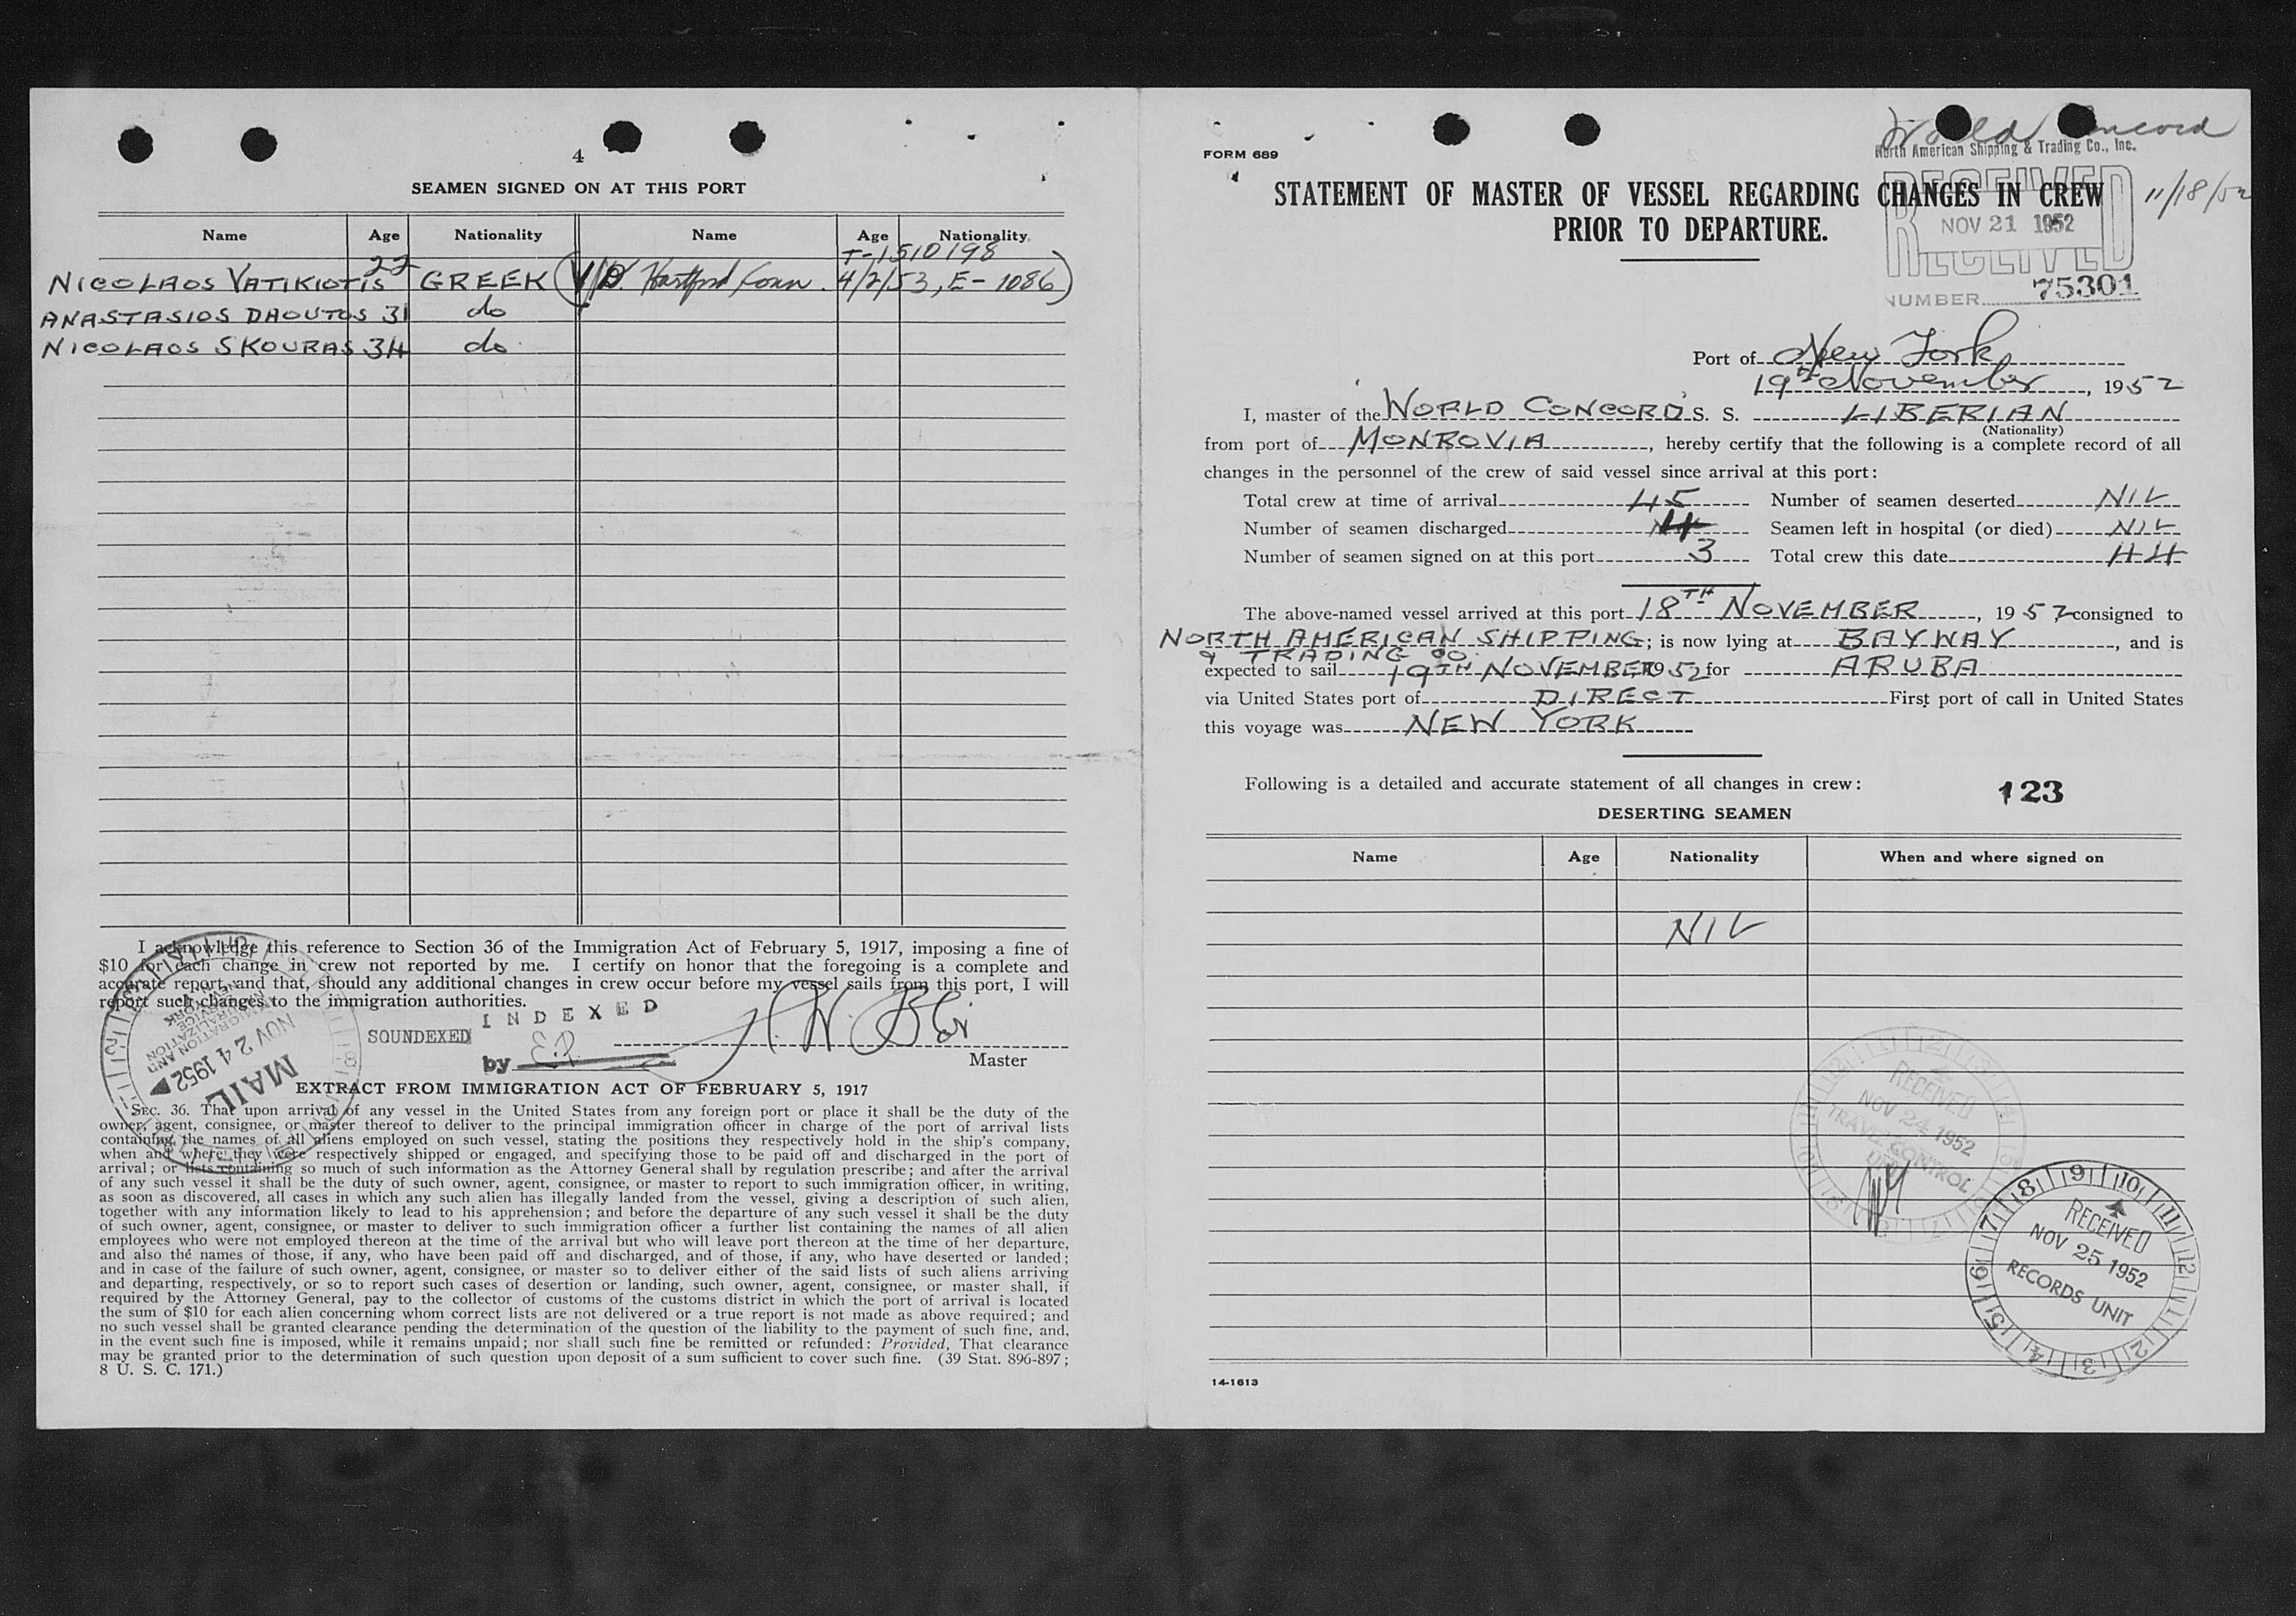 4
SEAMEN SIGNED ON AT THIS PORT
Name Age Nationality Name Age Nationality
T-1510198
NICOLAOS VATIKIOTIS 22 GREEK ( Hartford Conn. 4/2/53, E-1086)
ANASTASIOS DHOUTOS 31 do
NICOLAOS SKOURAS 34 do
I acknowledge this reference to Section 36 of the Immigration Act of February 5, 1917, imposing a fine of
$10 for each change in crew not reported by me. I certify on honor that the foregoing is a complete and
accurate report, and that, should any additional changes in crew occur before my vessel sails from this port, I will
report such changes to the immigration authorities.
INDEXED
SOUNDEXED
by E.P.
Master
NOV 24 1952
MAIL
EXTRACT FROM IMMIGRATION ACT OF FEBRUARY 5, 1917
SEC. 36. That upon arrival of any vessel in the United States from any foreign port or place it shall be the duty of the
owner, agent, consignee, or master thereof to deliver to the principal immigration officer in charge of the port of arrival lists
containing the names of all aliens employed on such vessel, stating the positions they respectively hold in the ship's company,
when and where they were respectively shipped or engaged, and specifying those to be paid off and discharged in the port of
arrival; or lists containing so much of such information as the Attorney General shall by regulation prescribe; and after the arrival
of any such vessel it shall be the duty of such owner, agent, consignee, or master to report to such immigration officer, in writing,
as soon as discovered, all cases in which any such alien has illegally landed from the vessel, giving a description of such alien,
together with any information likely to lead to his apprehension; and before the departure of any such vessel it shall be the duty
of such owner, agent, consignee, or master to deliver to such immigration officer a further list containing the names of all alien
employees who were not employed thereon at the time of the arrival but who will leave port thereon at the time of her departure,
and also the names of those, if any, who have been paid off and discharged, and of those, if any, who have deserted or landed;
and in case of the failure of such owner, agent, consignee, or master so to deliver either of the said lists of such aliens arriving
and departing, respectively, or so to report such cases of desertion or landing, such owner, agent, consignee, or master shall, if
required by the Attorney General, pay to the collector of customs of the customs district in which the port of arrival is located
the sum of $10 for each alien concerning whom correct lists are not delivered or a true report is not made as above required; and
no such vessel shall be granted clearance pending the determination of the question of the liability to the payment of such fine, and,
in the event such fine is imposed, while it remains unpaid; nor shall such fine be remitted or refunded: Provided, That clearance
may be granted prior to the determination of such question upon deposit of a sum sufficient to cover such fine. (39 Stat. 896-897;
8 U. S. C. 171.)
World Concord
FORM 689
North American Shipping & Trading Co., Inc.
STATEMENT OF MASTER OF VESSEL REGARDING CHANGES IN CREW
PRIOR TO DEPARTURE.
11/18/52
RECEIVED
NOV 21 1952
RECEIVED
NUMBER 75301
Port of New York
19th November, 1952
I, master of the WORLD CONCORD S. S. LIBERIAN
(Nationality)
from port of MONROVIA, hereby certify that the following is a complete record of all
changes in the personnel of the crew of said vessel since arrival at this port:
Total crew at time of arrival 45 Number of seamen deserted NIL
Number of seamen discharged 4 Seamen left in hospital (or died) NIL
Number of seamen signed on at this port 3 Total crew this date 44
The above-named vessel arrived at this port 18TH NOVEMBER, 1952 consigned to
NORTH AMERICAN SHIPPING; is now lying at BAYWAY, and is
& TRADING CO.
expected to sail 19TH NOVEMBER 1952 for ARUBA
via United States port of DIRECT First port of call in United States
this voyage was NEW YORK
Following is a detailed and accurate statement of all changes in crew:
123
DESERTING SEAMEN
Name Age Nationality When and where signed on
NIL
RECEIVED
NOV 24 1952
TRAVEL CONTROL
UNIT
RECEIVED
NOV 25 1952
RECORDS UNIT
14-1613